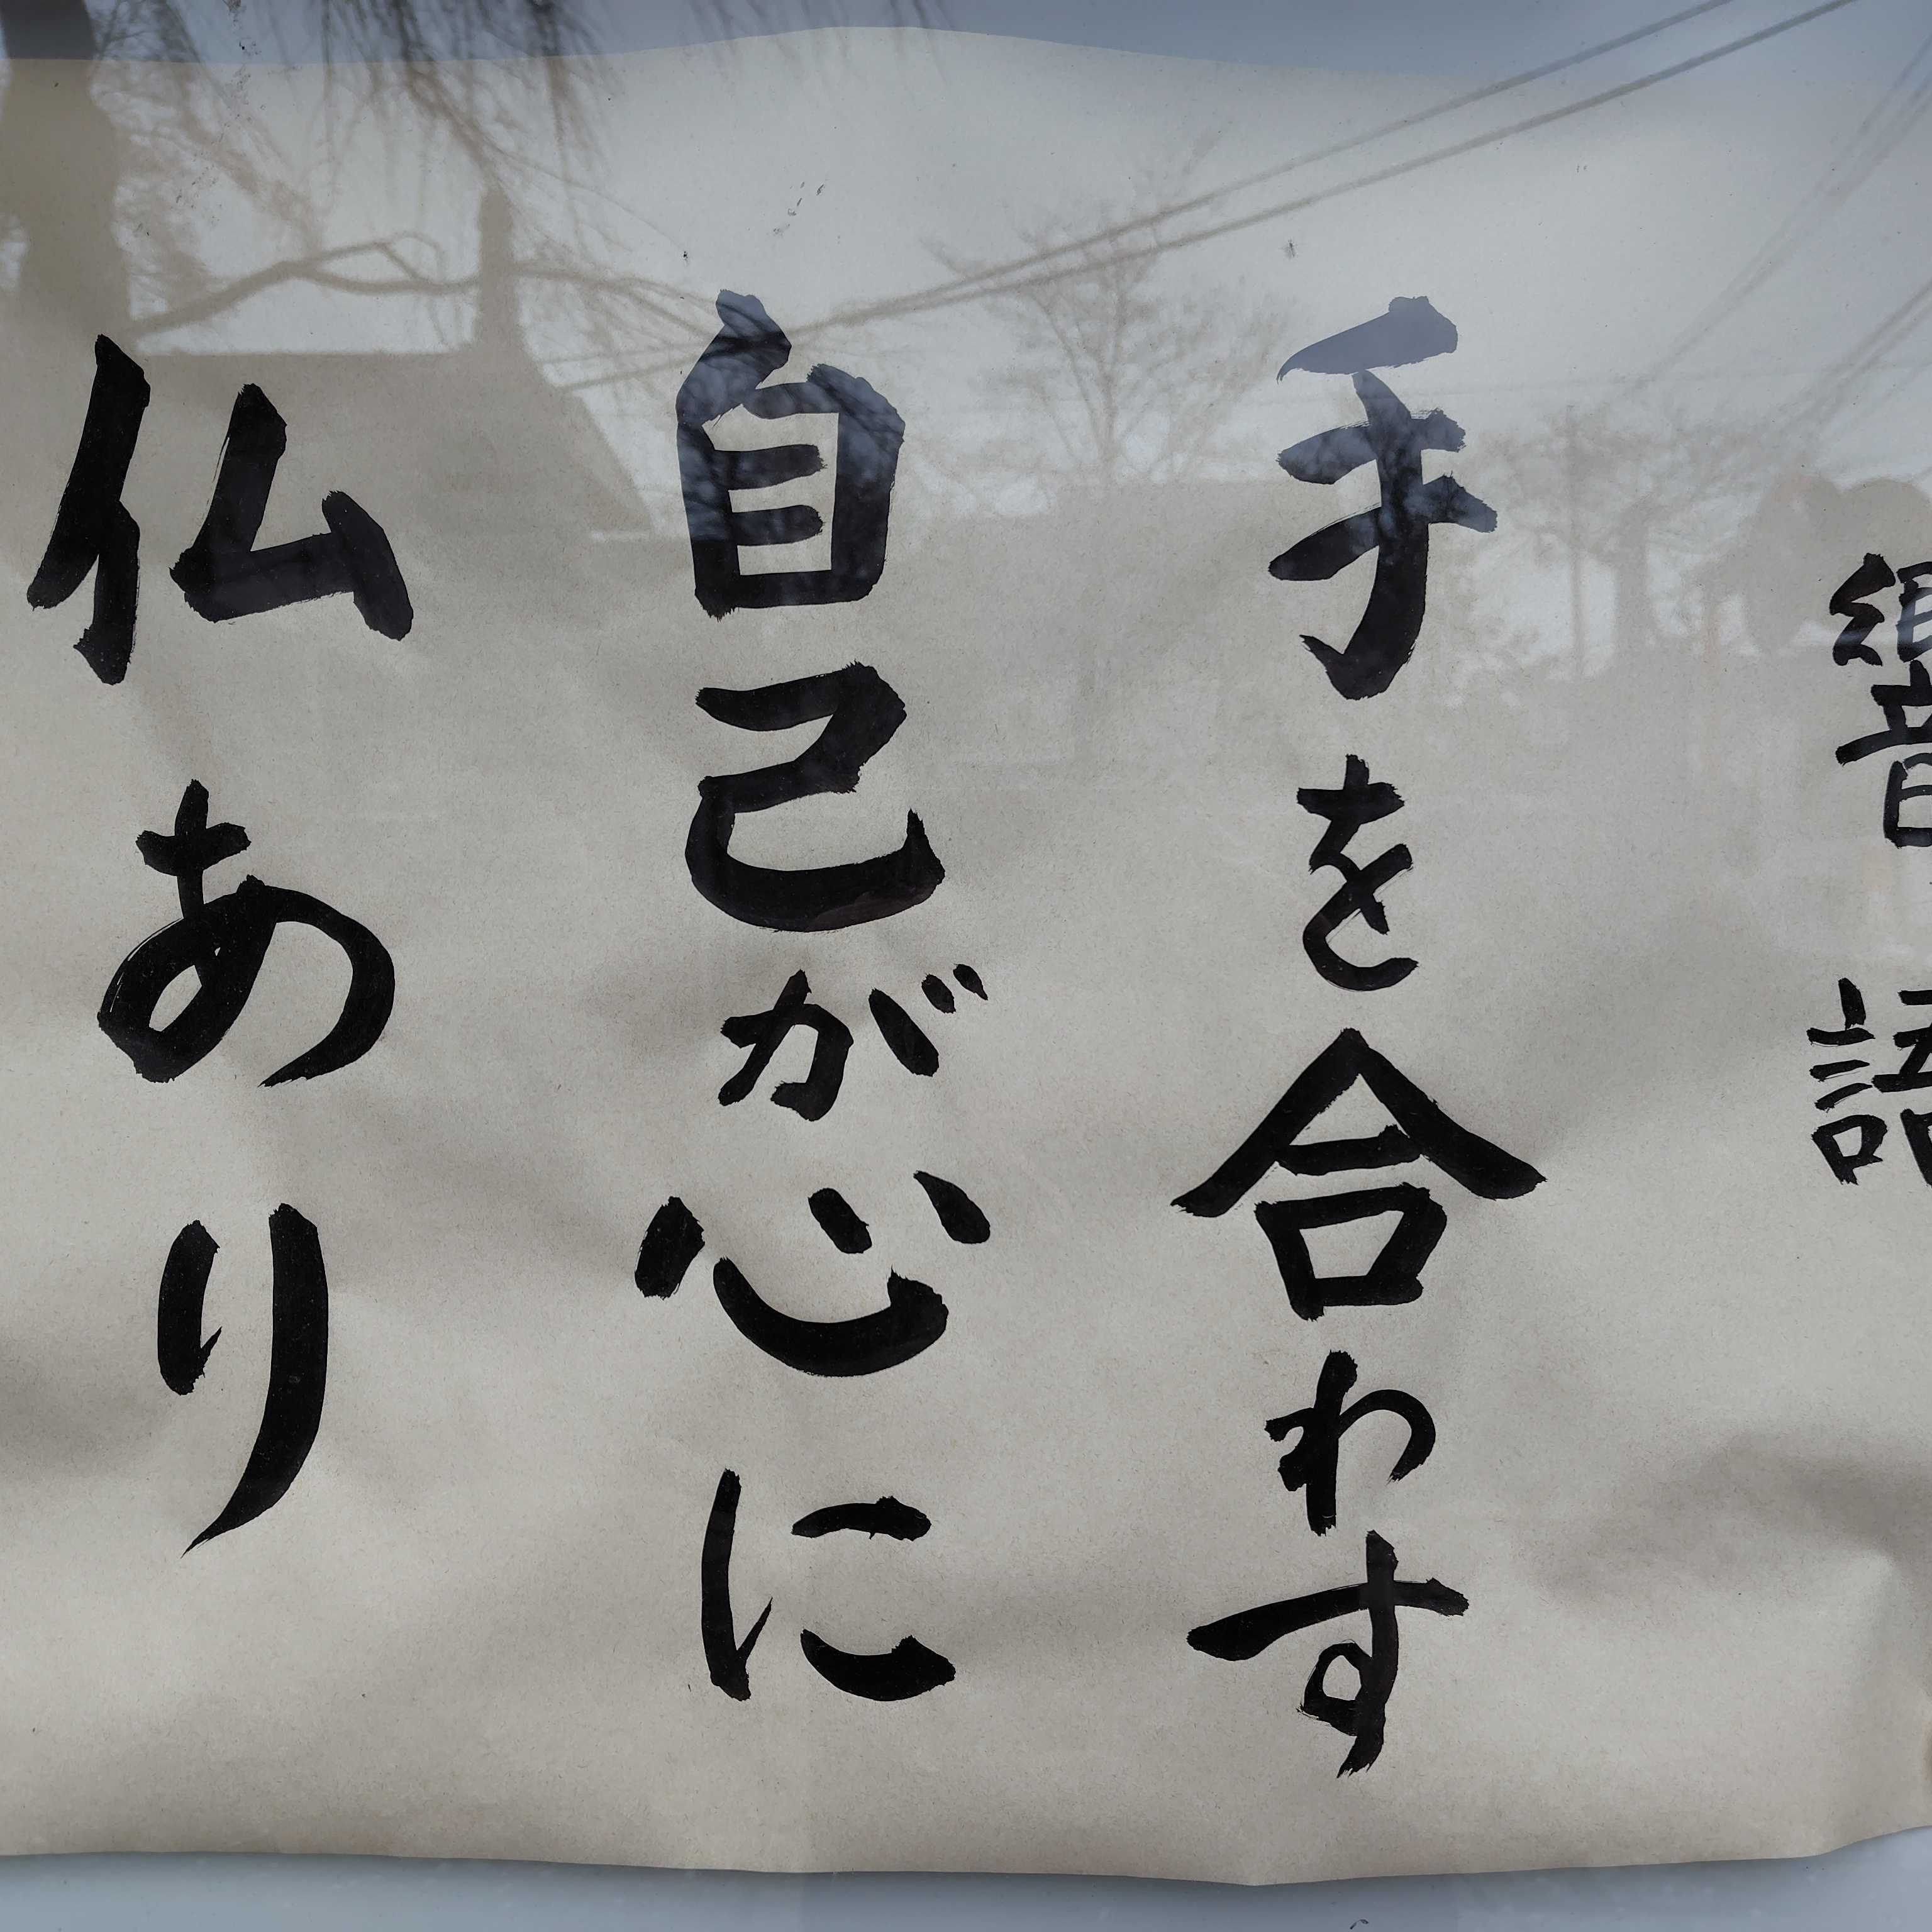 響 語
手を合わす
自己が心に
仏あり